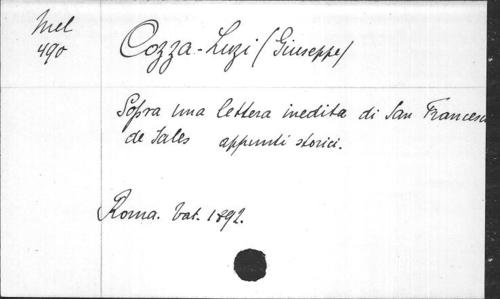 Mel
490
Cozza-Luzi (Giuseppe)
Sopra una lettera inedita di San Francesco
de Sales appunti storici.
Roma. Vat. 1892.